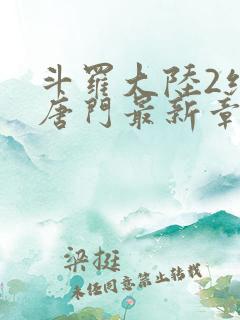 斗羅大陸2絕
唐門最新章
梁挺
未經同意禁止轉載